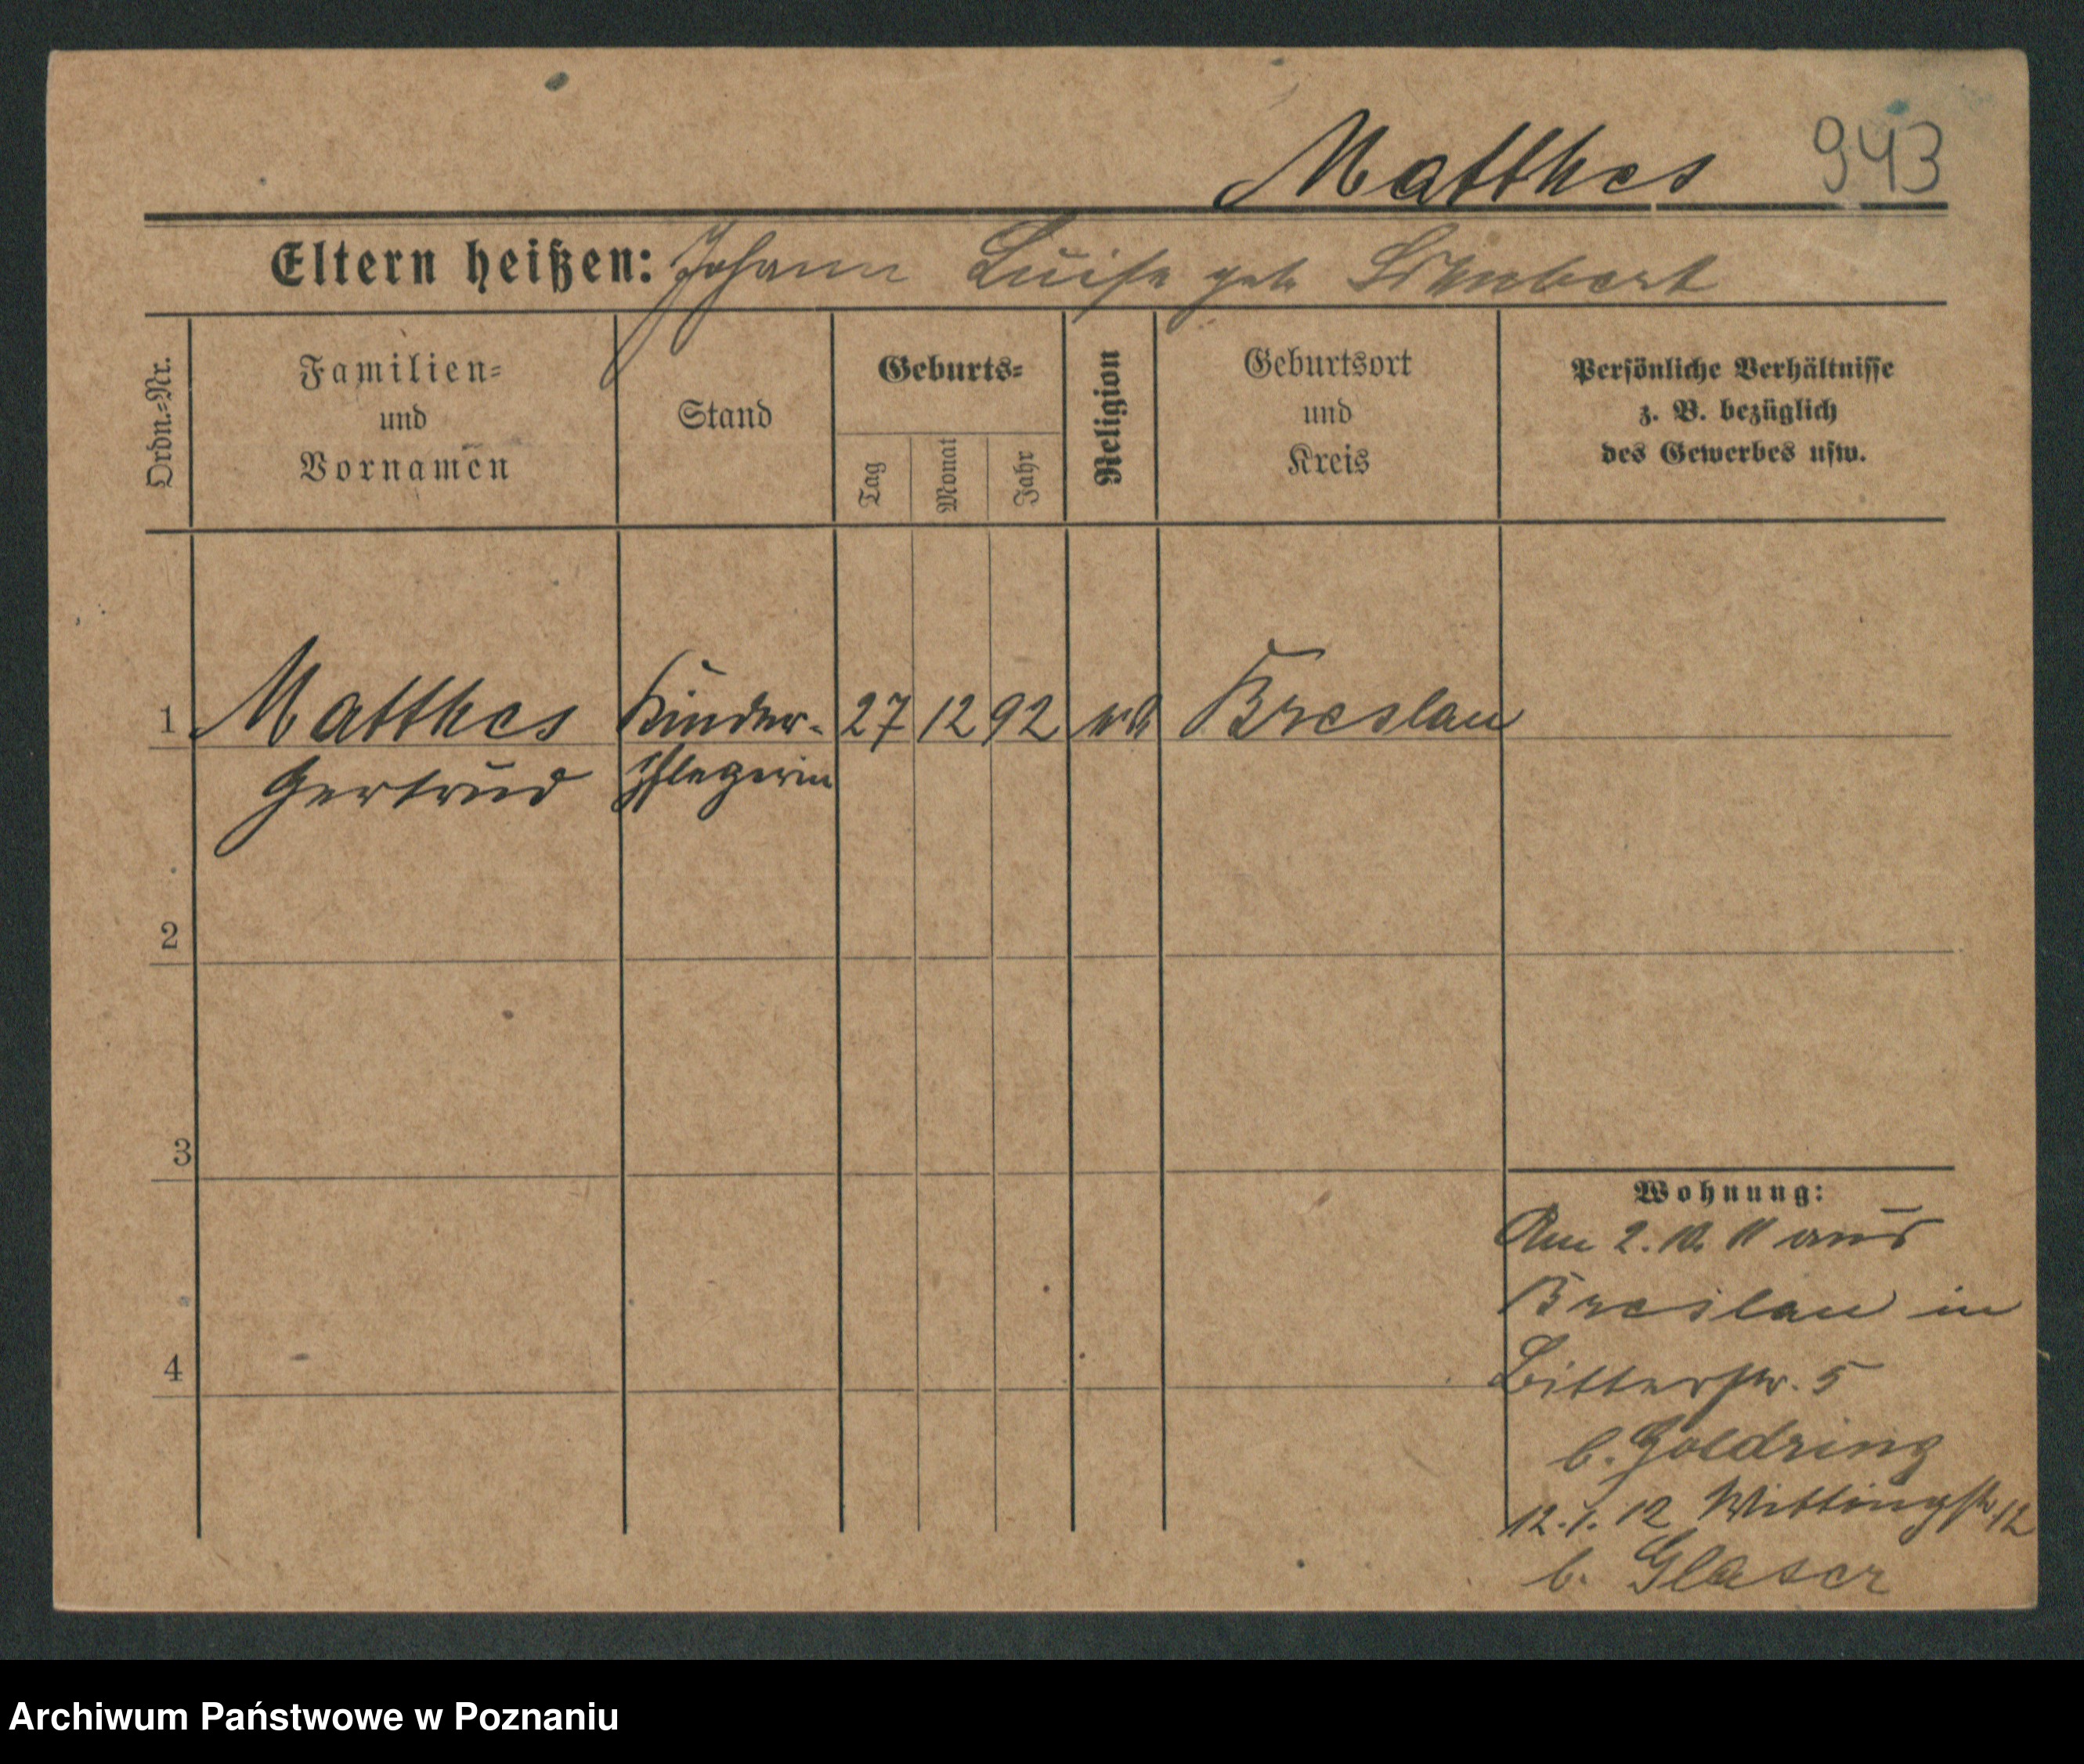 Matthes 943
Eltern heißen: Johann Luise geb.
Ordn.-Nr.
Familien-
und
Vornamen
Stand
Geburts-
Tag
Monat
Jahr
Religion
Geburtsort
und
Kreis
Persönliche Verhältnisse
z. B. bezüglich
des Gewerbes usw.
1 Matthes Kinder- 27 12 92 Breslau
Gertrud pflegerin
2
3
4
Wohnung:
Am 2. 10. 11 aus
Breslau in
Bitterstr. 5
b. Goldring
12. 1. 12 Wittingstr. 12
b. Glaser
Archiwum Państwowe w Poznaniu